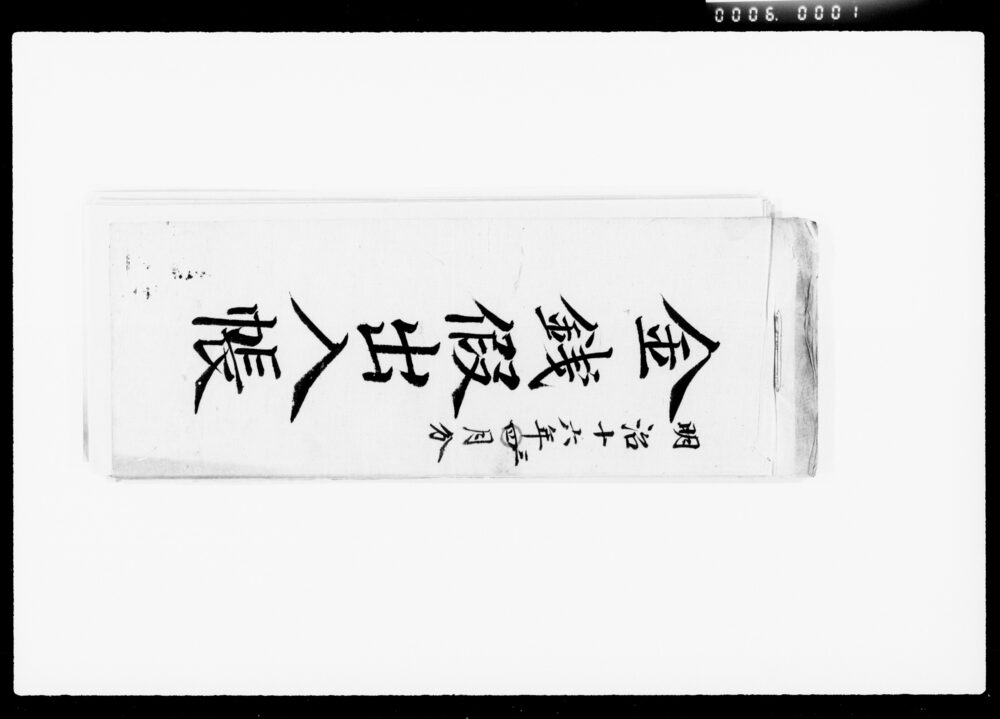 0006. 0001
金錢假出入帳
明治十六年四三月分